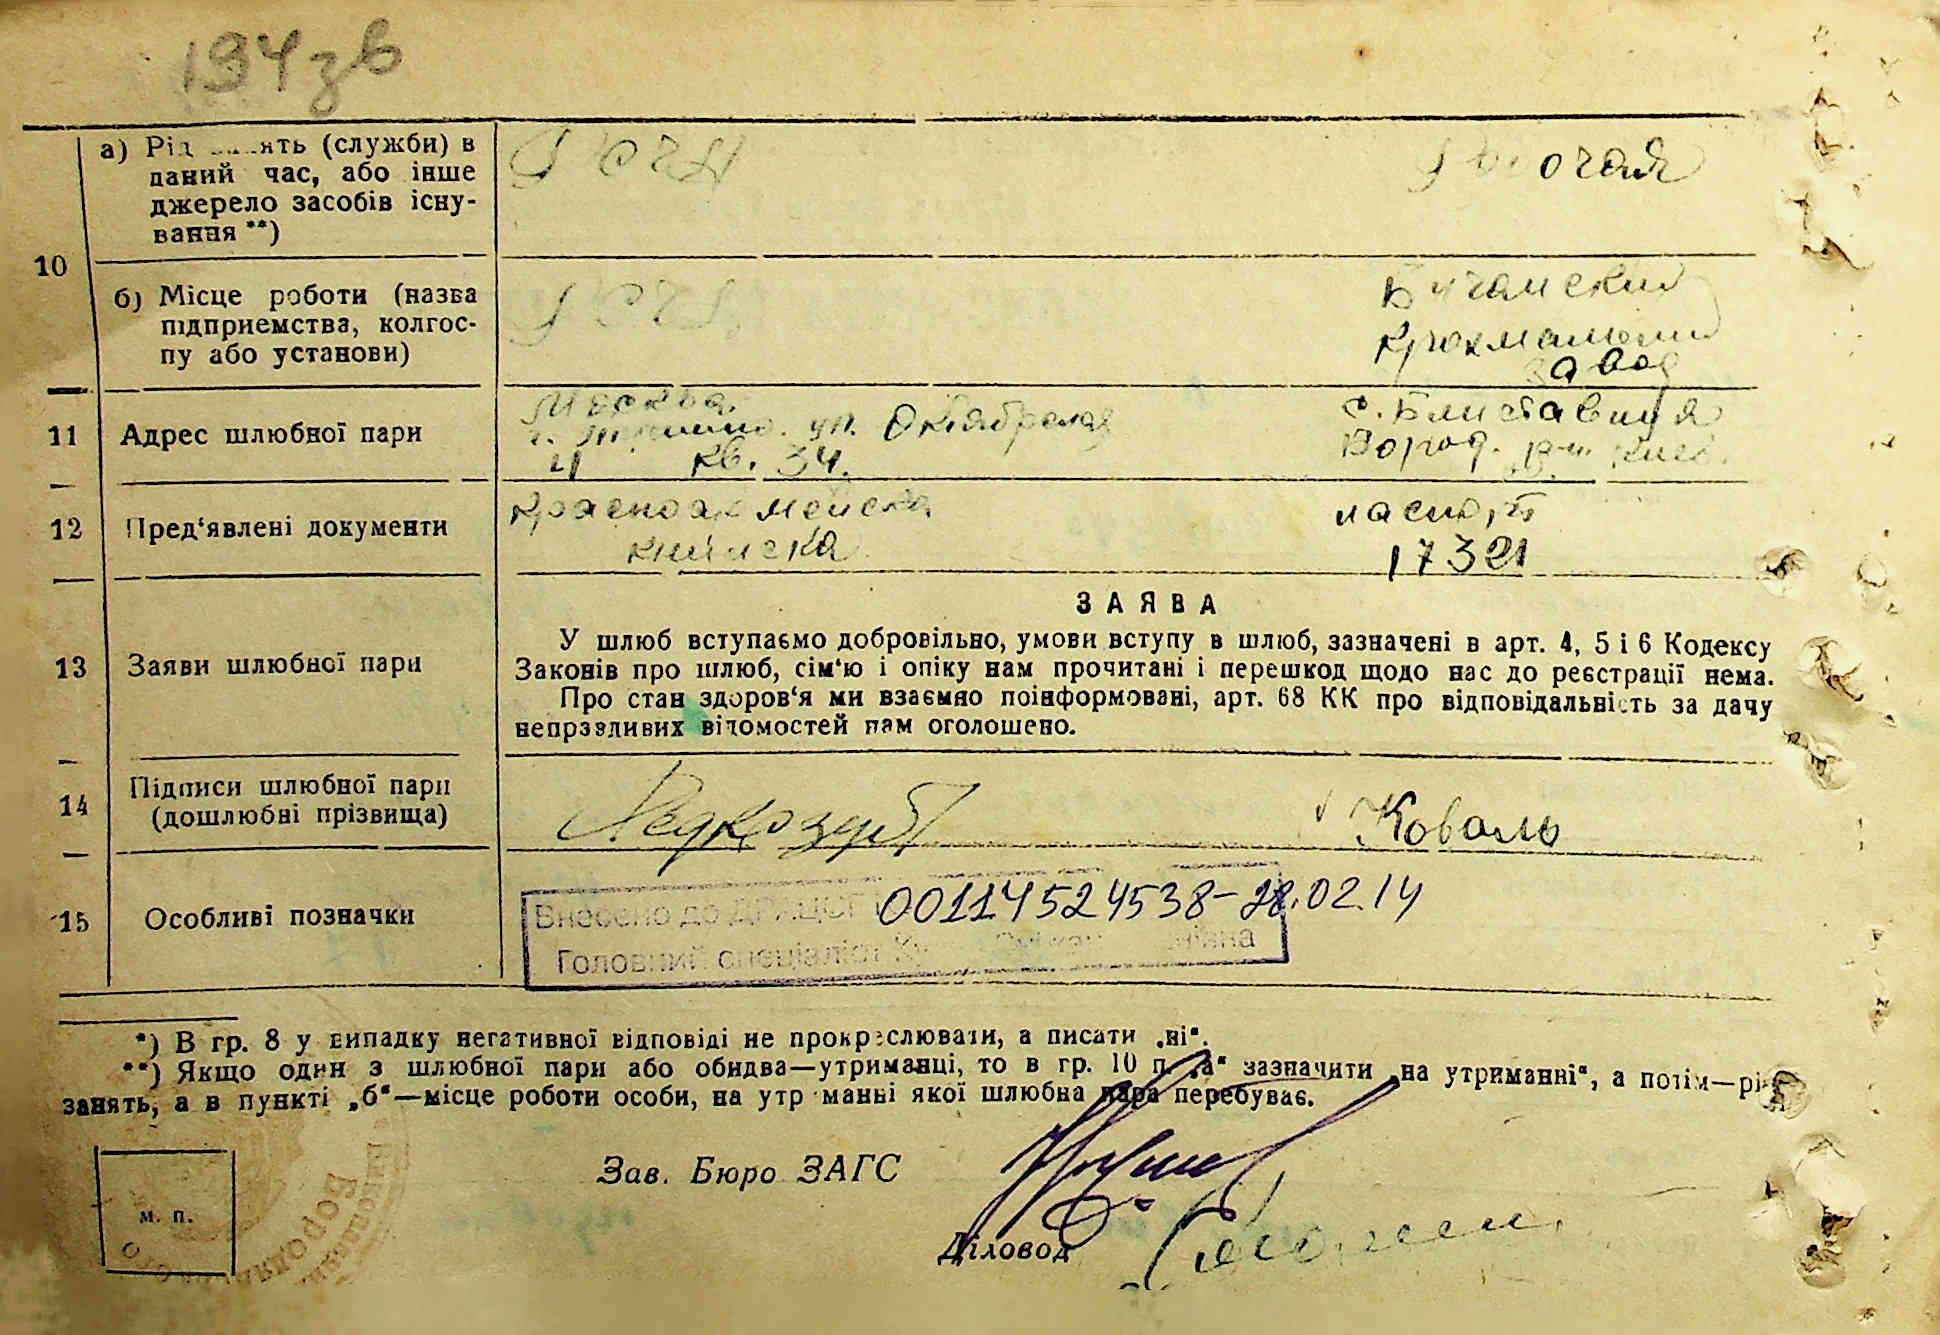 194 зв
10
а) Рід занять (службы) в
даний час, або інше
джерело засобів існу-
вання **)
РСЧА
б) Місце роботи (назва
підприємства, колгос-
пу або установи)
крохмальний
завод
11 Адрес шлюбної пари
Москва. с. Блиставиця
ул. Октябрьская Бород. р-н. Киев.
кв. 34.
12 Пред‘явлені документи
красноармейска паспорт
книжка 17321
13 Заяви шлюбної пари
ЗАЯВА
У шлюб вступаємо добровільно, умови вступу в шлюб, зазначені в арт. 4, 5 і 6 Кодексу
Законів про шлюб, сім‘ю і опіку нам прочитані і перешкод щодо нас до реєстрації нема.
Про стан здоров‘я ми взаємно поінформовані, арт. 68 КК про відповідальність за дачу
неправдивих відомостей нам оголошено.
14 Підписи шлюбної пари
(дошлюбні прізвища)
Коваль
15 Особливі позначки
Внесено до ДРАЦСГ 00114524538-28.02.14
Головний спеціаліст
*) В гр. 8 у випадку негативної відповіді не прокреслювати, а писати „ні“.
**) Якщо один з шлюбної пари або обидва—утриманці, то в гр. 10 п. „а“ зазначити „на утриманні“, а потім—рід
занять, а в пункті „б“—місце роботи особи, на утриманні якої шлюбна пара перебуває.
Зав. Бюро ЗАГС
м. п.
Діловод